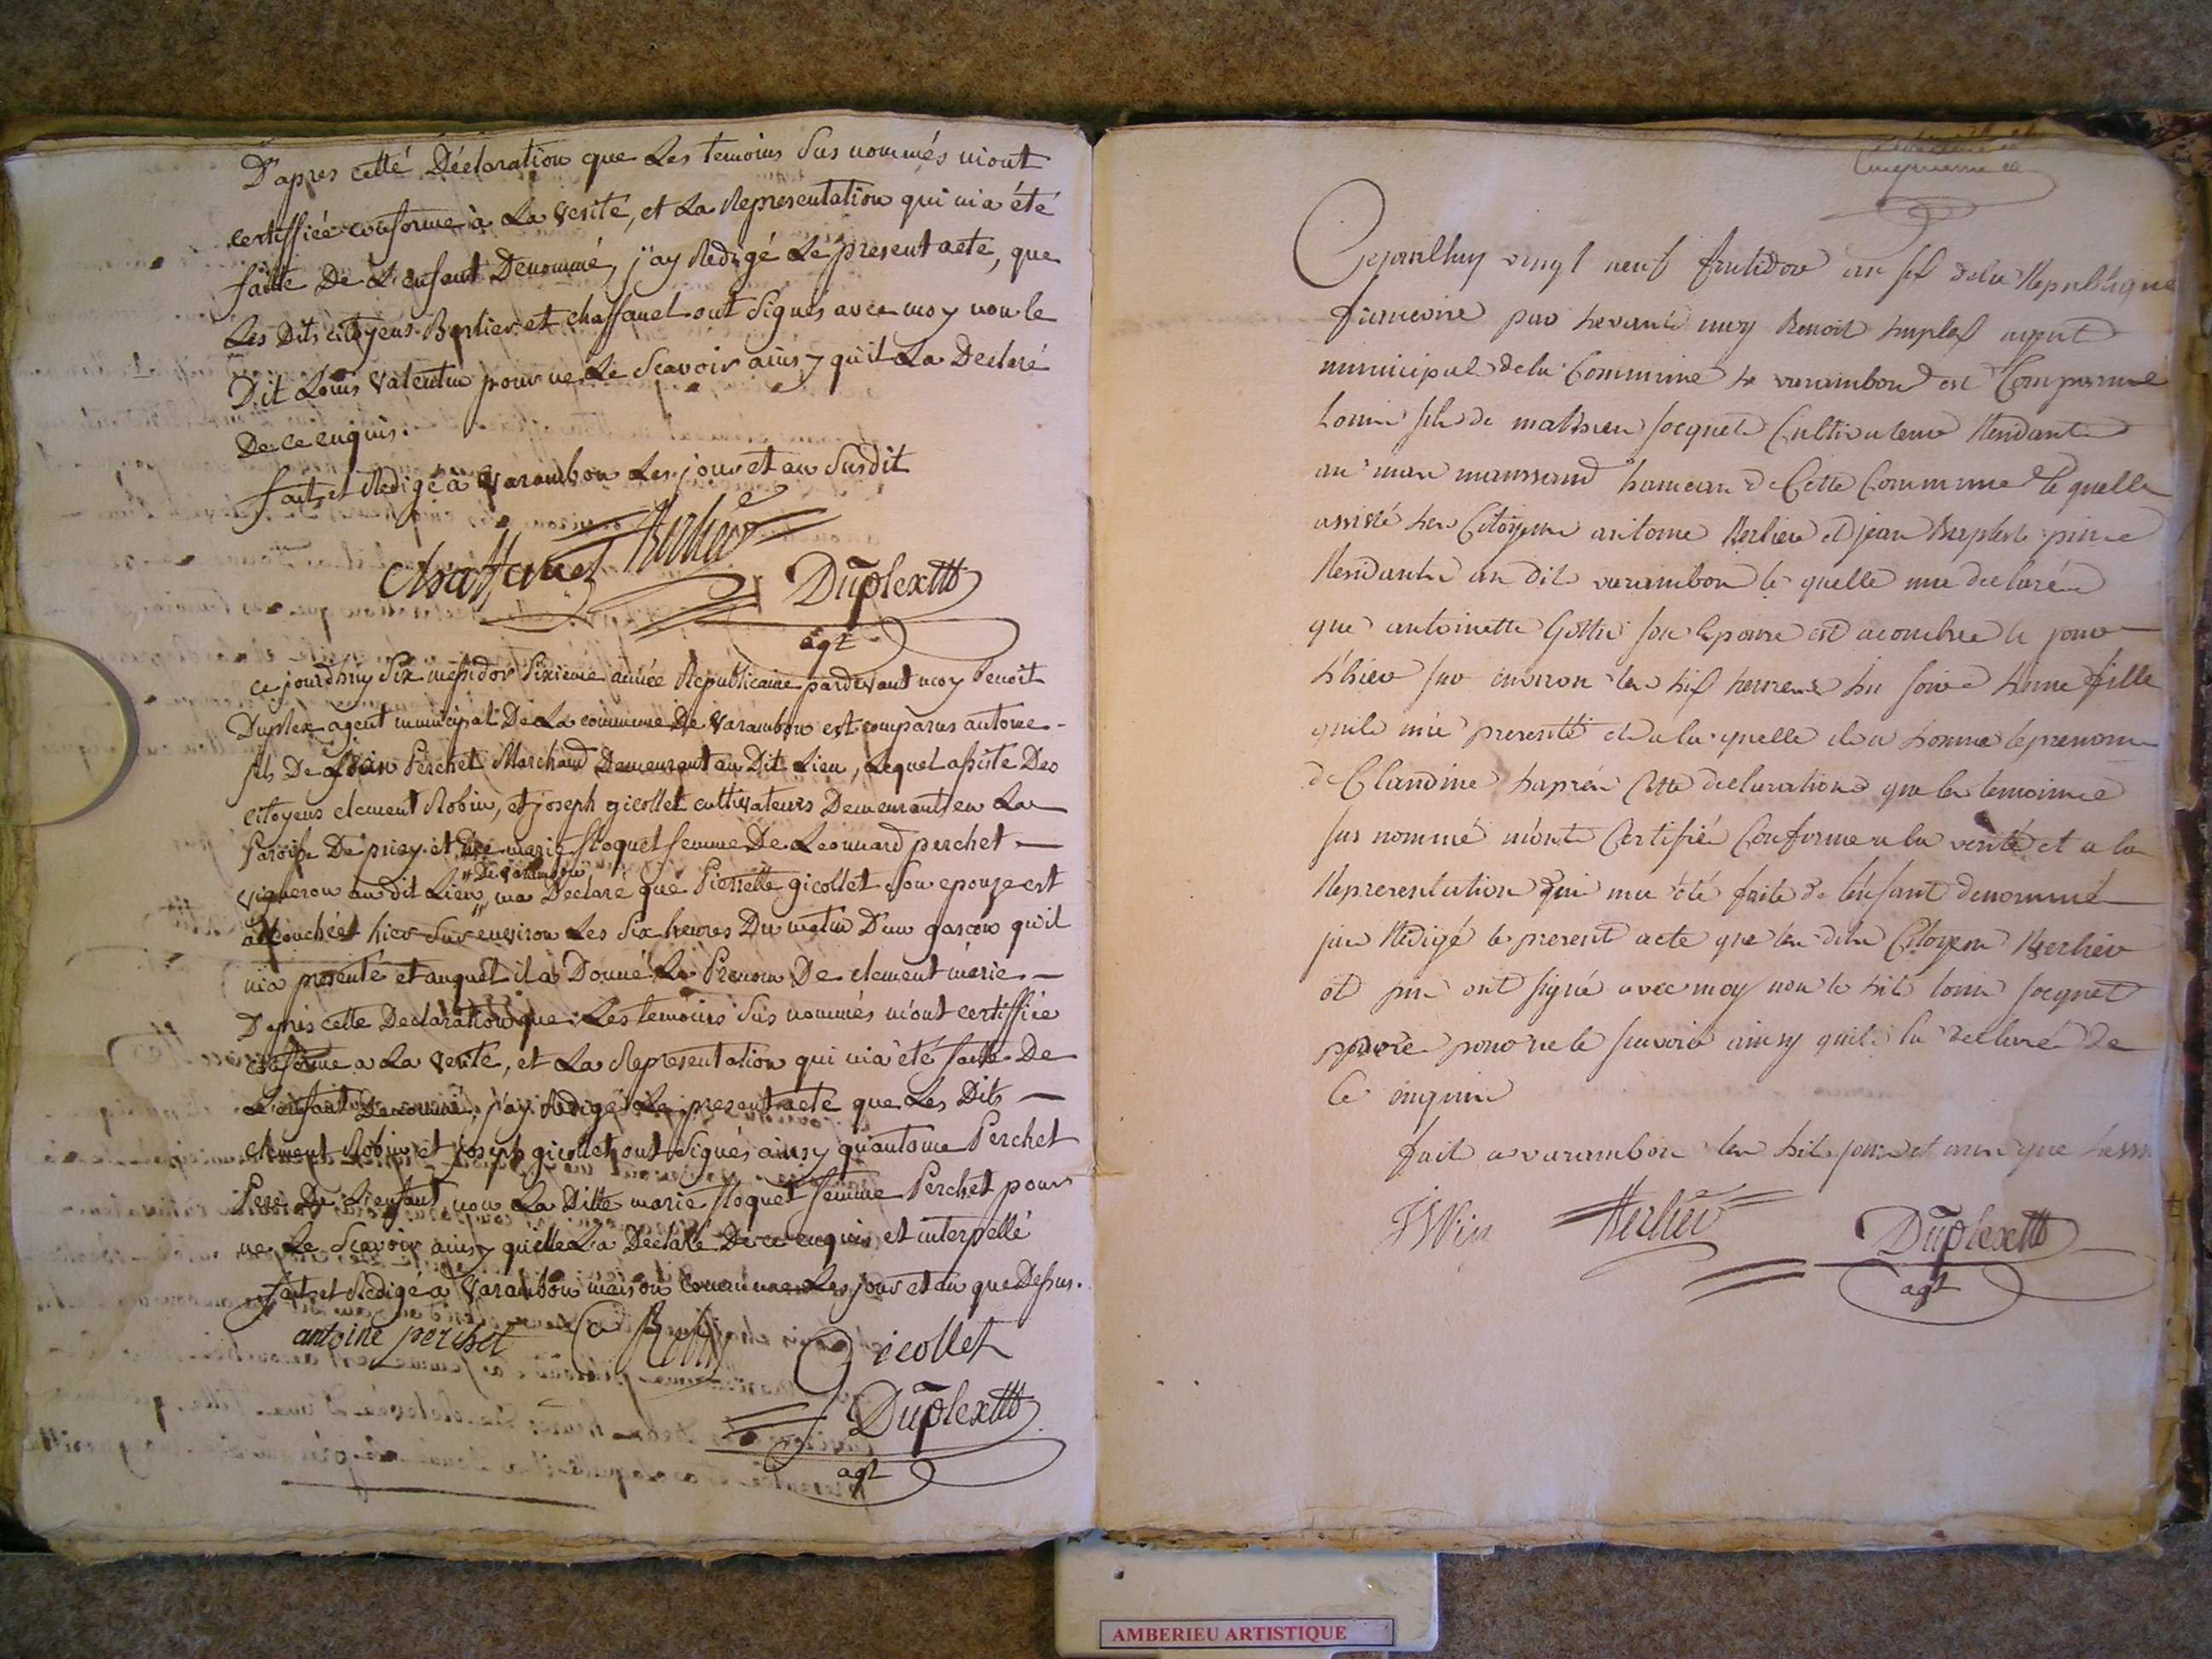 D'apres cette Déclaration que Les temoins Sus nommés m'ont
certiffiée conforme à La verité, et La Representation qui m'a été
faitte De L'enfant Denommé, j'ay Redigé Le present acte, que
Les Dits citoyens Berlier et chaffanel ont Signés avec moy non le
Dit Louis valentin pour ne Le Scavoir ainsy qu'il La Declaré
De ce enquis.
fait et Redigé à Varambon Les jour et an Susdit
chaffanel Berlier
Duplex
agt
ce jourdhuy Six messidor Sixieme année Republicaine pardevant moy Benoit
Duplex agent municipal De La commune De Varambon est comparus antoine
fils De Perchet Marchand Demeurant au Dit Lieu, Lequel assisté Des
citoyens clement Robin, et joseph gicollet cultivateurs Demeurant en La
Paroisse De priay et De marie floquet femme De Leonnard perchet
vigneron au dit Lieu " De varambon " m'a Declaré que Pierrette gicollet Son epouze est
accouchée hier Sur environ Les Six heures Du matin D'un garçon qu'il
m'a presenté et auquel il a Donné Le Prenom De clement marie
D'apris cette Declaration que Les temoins Sus nommés m'ont certiffiée
conforme a La verité, et La Representation qui m'a été faitte De
L'enfant Denommé, j'ay Redigé Le present acte que Les Dits
clement Robin et joseph gicollet ont Signés ainsy qu'antoine Perchet
Pere De L'enfant non La Ditte marie floquet femme Perchet pour
ne Le Scavoir ainsy qu'elle La Déclaré De ce enquis et interpellé
fait et Redigé a Varambon maison commune Les jour et an que Dessus.
antoine perchet C Robin Gicollet
Duplex
agt
Cejourdhuy vingt neuf frutidor an six de la Republique
francoise par devant moy Benoit Duplex agent
municipal de la Commune de varambon est Comparue
Louis fils de mathieu Socquet Cultivateur Residant
au hameau de Cette Commune le quelle
assisté des Citoyens antoine Berlier et jean Baptiste pin
Residant au dit varambon le quelle ma declaré
que antoinette Gottu son epouse est acouchée le jour
d'hier sur environ les dix heures du soir d'une fille
quil ma presenté et a la quelle il a donné le prenom
de Claudine d'aprés Cette declaration que les temoins
sus nommé m'ont Certifié Conforme a la verité et a la
Representation qui ma été faite de l'enfant denommé
jai Rédigé le present acte que les dits Citoyens Berlier
et pin ont signé avec moy non le dit louis Socquet
pour ne le scavoir ainsy quil la declaré de
Ce enquis
fait a varambon les dit jour et an que dessu
Berlier
Duplex
agt
AMBERIEU ARTISTIQUE